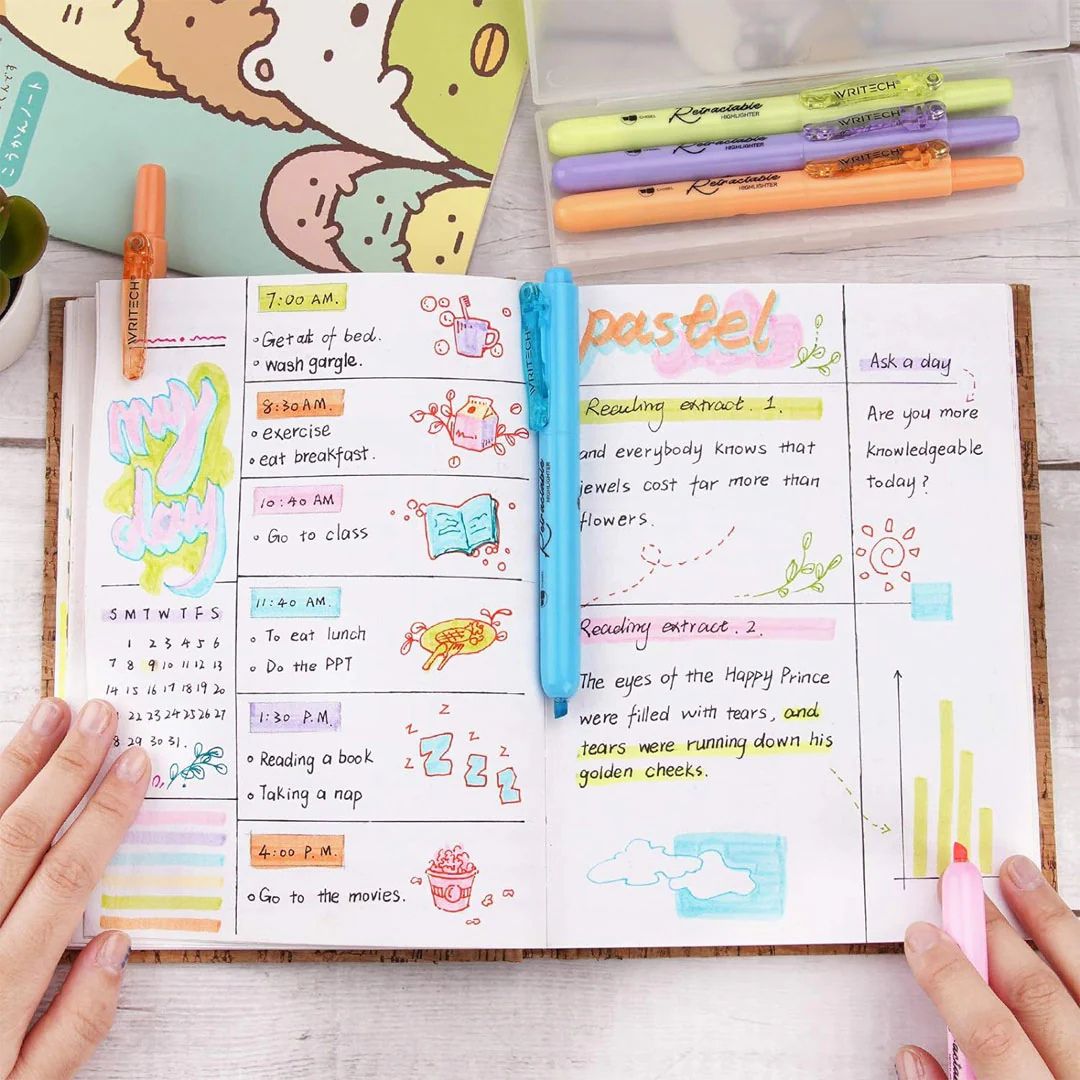 こうかんノート
WRITECH
Retractable
HIGHLIGHTER
CHISEL
WRITECH
Retractable
HIGHLIGHTER
WRITECH
Retractable
HIGHLIGHTER
CHISEL
WRITECH
my
day
S M T W T F S
1 2 3 4 5 6
7 8 9 10 11 12 13
14 15 16 17 18 19 20
22 23 24 25 26 27
29 30 31.
7:00 AM.
Get of bed.
wash gargle.
8:30 AM.
exercise
eat breakfast.
10:40 AM
Go to class
11:40 AM.
To eat lunch
Do the PPT
1:30 P.M.
Reading a book
Taking a nap
z
z
z
Z
Z
Z
4:00 P.M.
Go to the movies.
WRITECH
Retractable
HIGHLIGHTER
pastel
Reading extract. 1.
and everybody knows that
jewels cost far more than
flowers.
Reading extract. 2.
The eyes of the Happy Prince
were filled with tears, and
tears were running down his
golden cheeks.
Ask a day
Are you more
knowledgeable
today?